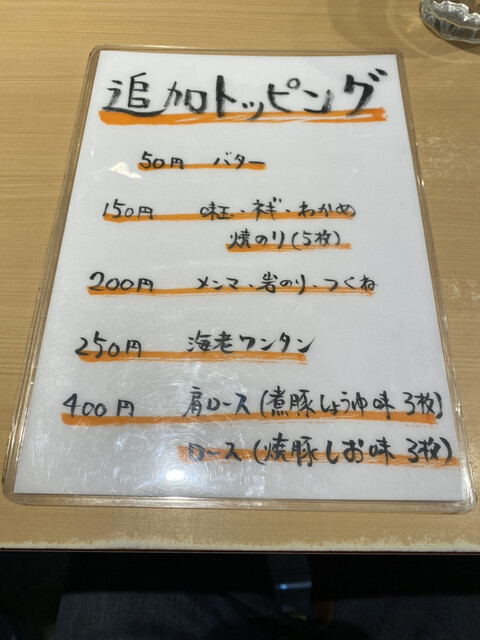 追加トッピング
50円 バター
150円 味玉・ネギ・わかめ
焼のり(5枚)
200円 メンマ・岩のり・つくね
250円 海老ワンタン
400円 肩ロース(煮豚しょうゆ味 3枚)
ロース(焼豚しお味 3枚)